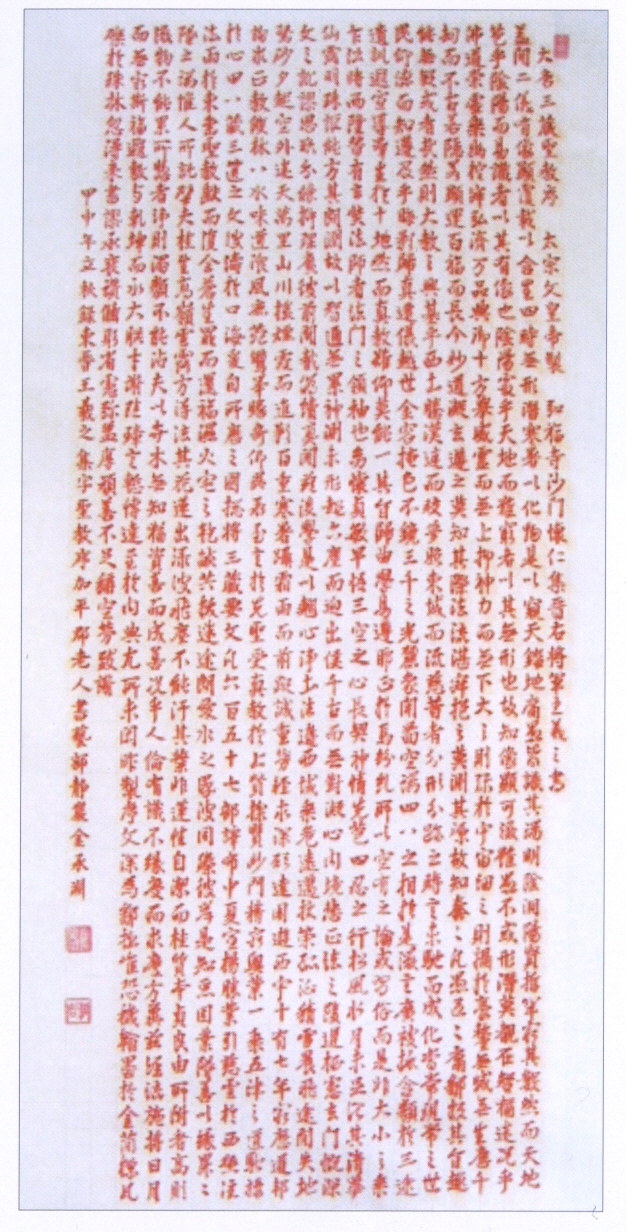 大唐三藏聖教序　太宗文皇帝製　弘福寺沙門懷仁集晉右將軍王羲之書
蓋聞二儀有像顯覆載以含生四時無形潛寒暑以化物是以窺天鑑地庸愚皆識其端明陰洞陽賢哲罕窮其數然而天地
苞乎陰陽而易識者以其有像也陰陽處乎天地而難窮者以其無形也故知像顯可徵雖愚不惑形潛莫覩在智猶迷況乎
佛道崇虛乘幽控寂弘濟萬品典御十方舉威靈而無上抑神力而無下大之則彌於宇宙細之則攝於毫釐無滅無生歷千
劫而不古若隱若顯運百福而長今妙道凝玄遵之莫知其際法流湛寂挹之莫測其源故知蠢蠢凡愚區區庸鄙投其旨趣
能無疑惑者哉然則大教之興基乎西土騰漢庭而皎夢照東域而流慈昔者分形分跡之時言未馳而成化當常現常之世
民仰德而知遵及乎晦影歸真遷儀越世金容掩色不鏡三千之光麗象開圖空端四八之相於是微言廣被拯含類於三途
遺訓遐宣導群生於十地然而真教難仰莫能一其旨歸曲學易遵邪正於焉紛糾所以空有之論或習俗而是非大小之乘
乍沿時而隆替有玄奘法師者法門之領袖也幼懷貞敏早悟三空之心長契神情先苞四忍之行松風水月未足比其清華
仙露明珠詎能方其朗潤故以智通無累神測未形超六塵而迥出隻千古而無對凝心內境悲正法之陵遲栖慮玄門慨深
文之訛謬思欲分條析理廣彼前聞截偽續真開茲後學是以翹心淨土法遊西域乘危遠邁杖策孤征積雪晨飛途間失地
驚砂夕起空外迷天萬里山川撥煙霞而進影百重寒暑躡霜雨而前蹤誠重勞輕求深願達周遊西宇十有七年窮歷道邦
詢求正教雙林八水味道飡風鹿菀鷲峯瞻奇仰異承至言於先聖受真教於上賢探賾妙門精窮奧業一乘五律之道馳驟
於心田八藏三篋之文波濤於口海爰自所歷之國總將三藏要文凡六百五十七部譯布中夏宣揚勝業引慈雲於西極注
法雨於東垂聖教缺而復全蒼生罪而還福濕火宅之乾燄共拔迷途朗愛水之昏波同臻彼岸是知惡因業墜善以緣昇昇
墜之端惟人所託譬夫桂生高嶺雲露方得泫其花蓮出淥波飛塵不能汙其葉非蓮性自潔而桂質本貞良由所附者高則
微物不能累所憑者淨則濁類不能沾夫以卉木無知猶資善而成善況乎人倫有識不緣慶而求慶方冀茲經流施將日月
而無窮斯福遐敷與乾坤而永大朕才謝珪璋言慚博達至於內典尤所未閑昨製序文深為鄙拙唯恐穢翰墨於金簡標瓦
礫於珠林忽得來書謬承褒讚循躬省慮彌益厚顏善不足稱空勞致謝
甲申年立秋錄東晉王羲之集字聖教序加平郡老人書藝部靜巖金承淵